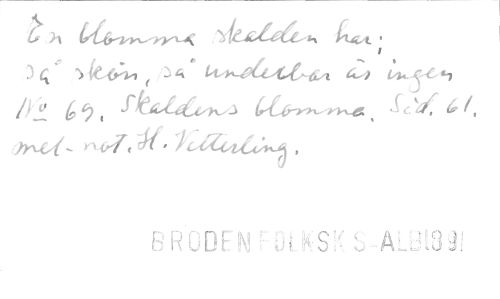 En blomma skalden har;
så skön, så underbar är ingen
No 69. Skaldens blomma. Sid. 61.
mel-not. H. Vetterling.
BRODEN FOLKSK S-ALB 1891